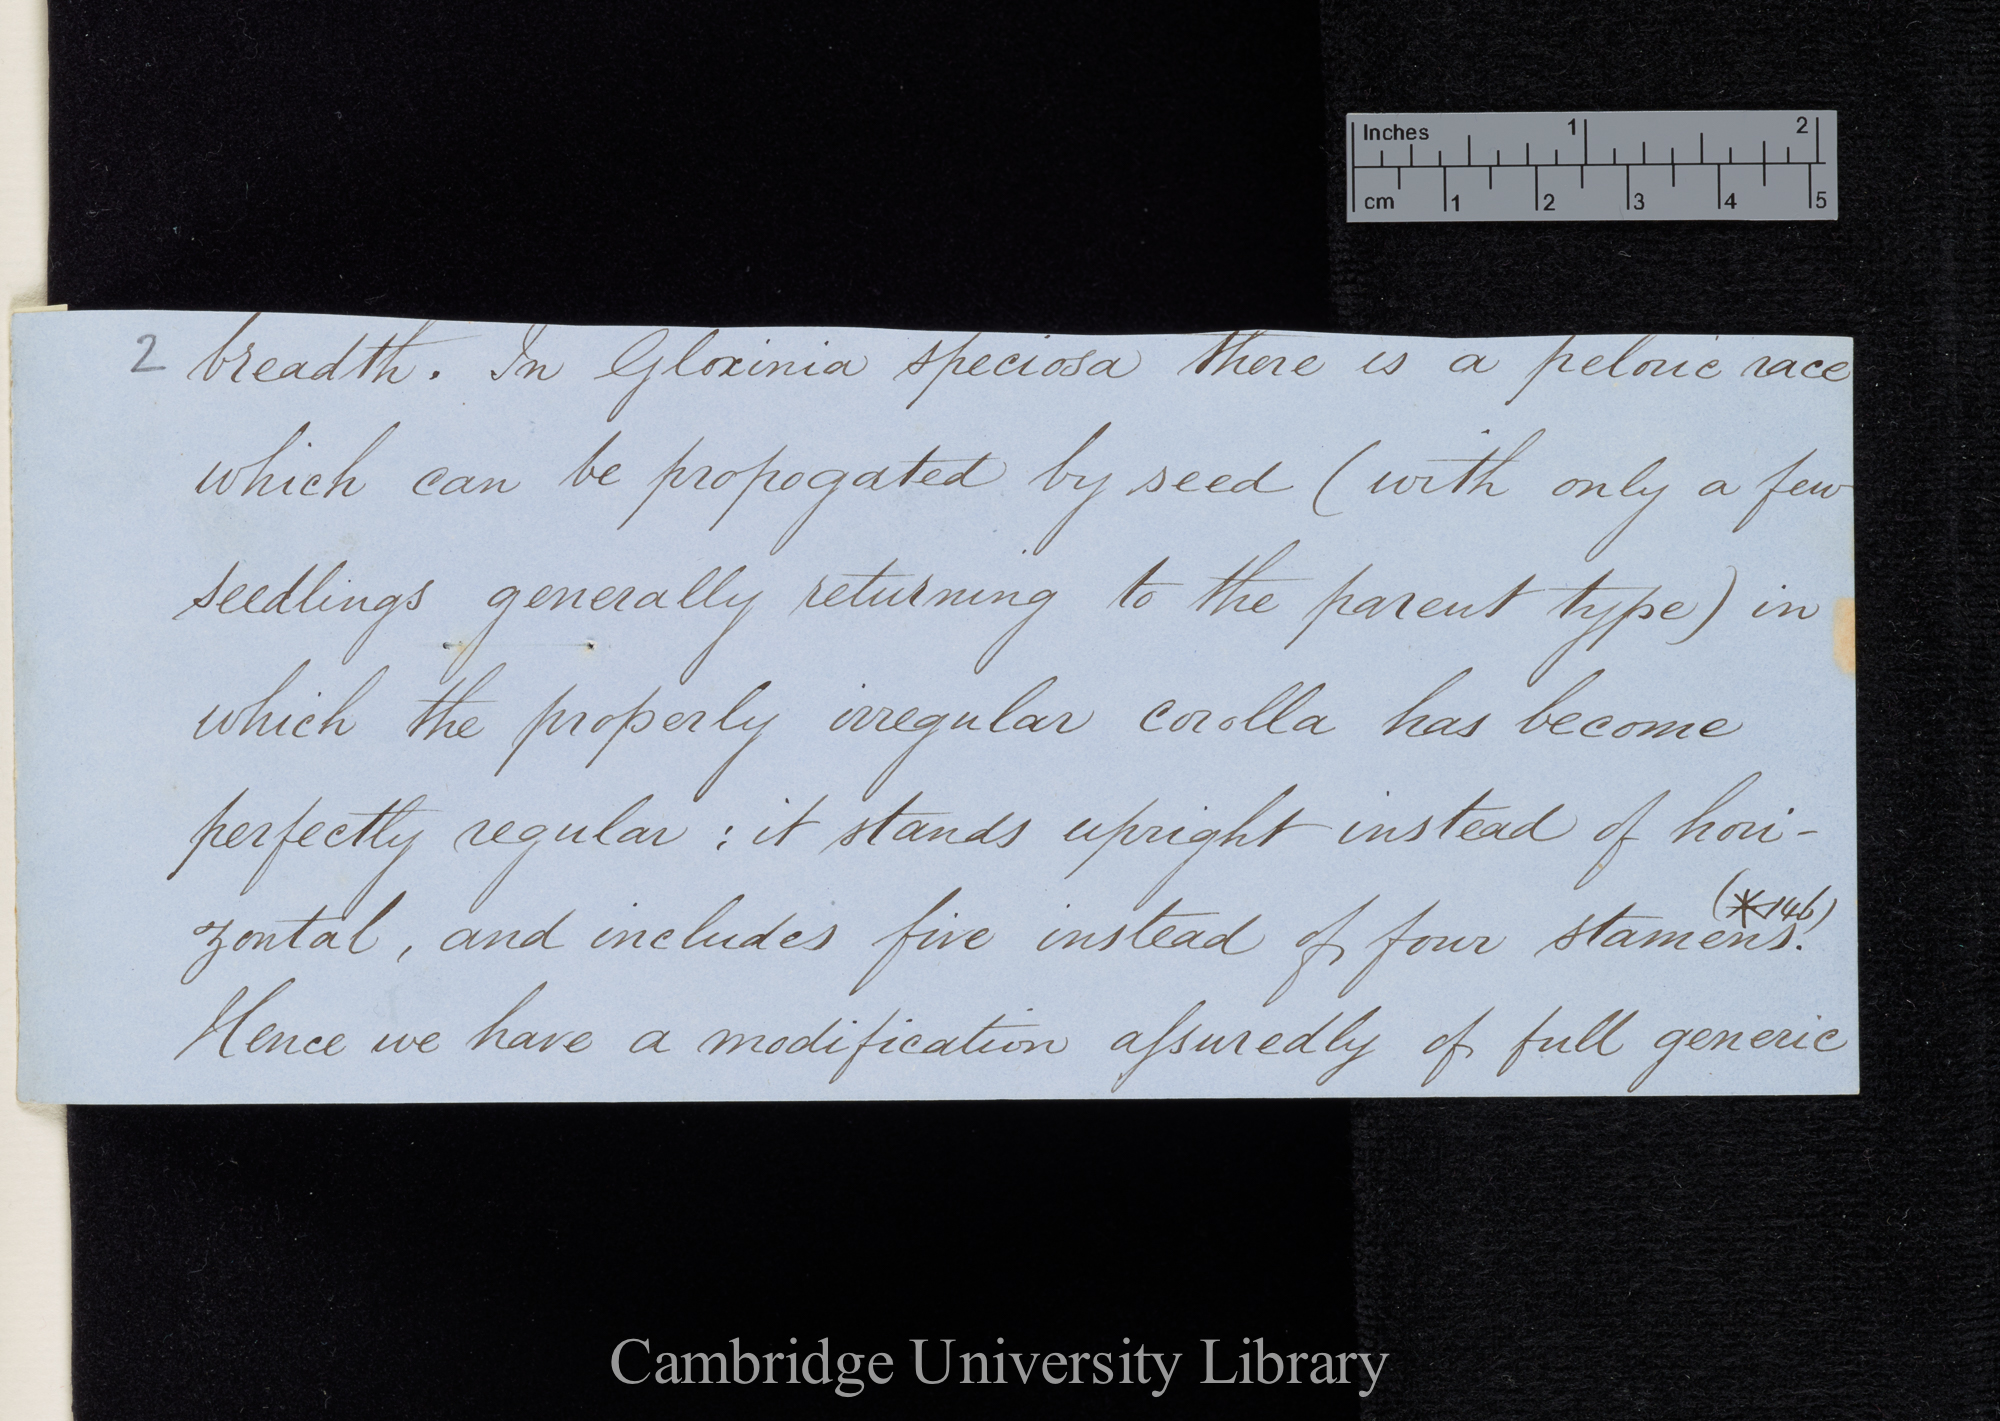 Inches 1 2
cm 1 2 3 4 5
2 breadth. In Gloxinia speciosa there is a peloric race
which can be propogated by seed (with only a few
seedlings generally returning to the parent type) in
which the properly irregular corolla has become
perfectly regular : it stands upright instead of hori-
(*146)
zontal, and includes five instead of four stamens.
Hence we have a modification assuredly of full generic
Cambridge University Library